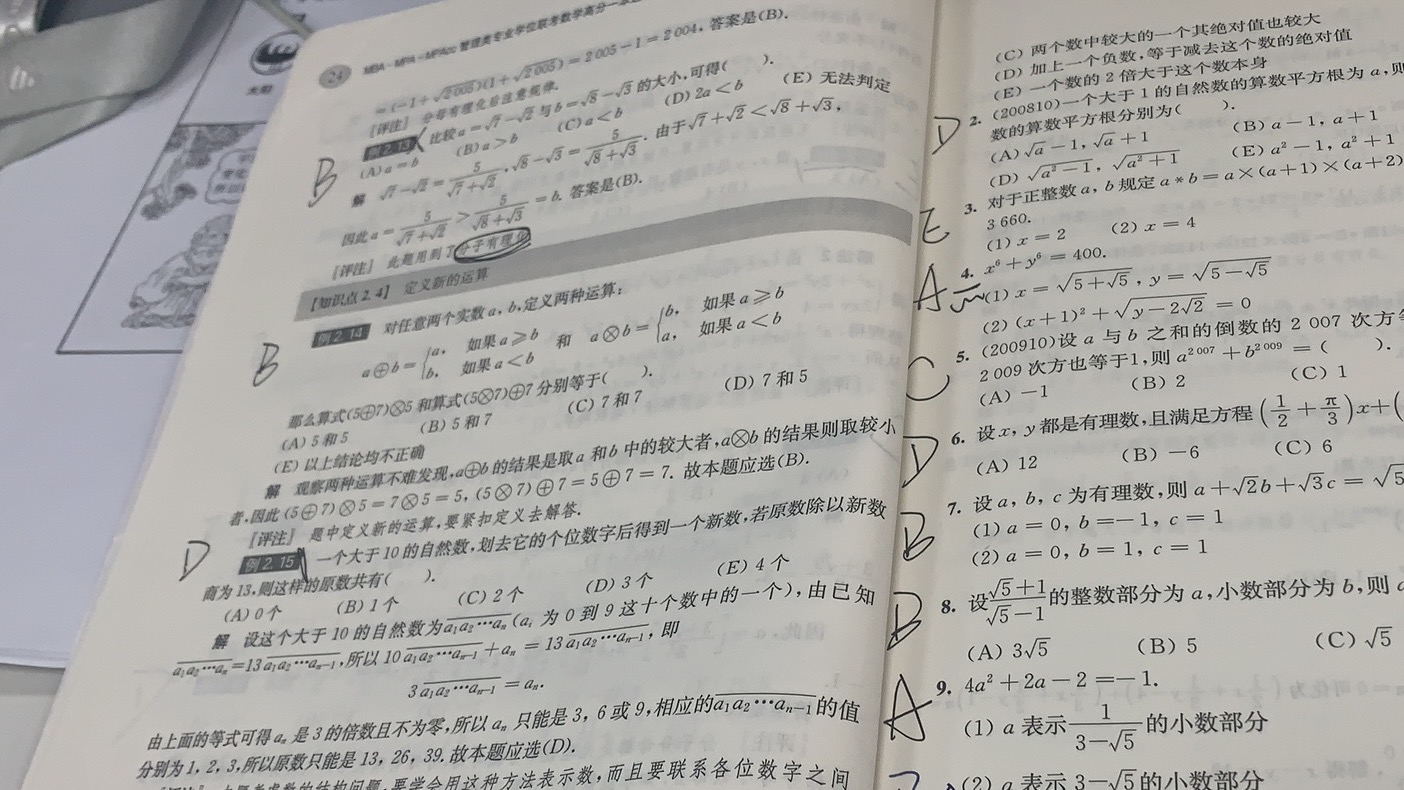 24 MBA、MPA、MPAcc 管理类专业学位联考数学高分一本
=(-1+√2005)(1+√2005)=2005-1=2004. 答案是(B).
[评注] 分母有理化后注意规律.
例2.13 比较a=√7-√2与b=√8-√3的大小,可得( ).
(A)a=b (B)a>b (C)a<b (D)2a<b (E)无法判定
B
解 √7-√2=5/(√7+√2),√8-√3=5/(√8+√3). 由于√7+√2<√8+√3,
因此a=5/(√7+√2)>5/(√8+√3)=b. 答案是(B).
[评注] 此题用到了分子有理化
[知识点2.4] 定义新的运算
例2.14 对任意两个实数a,b,定义两种运算:
B
a⊕b={a, 如果a≥b 和 a⊗b={b, 如果a≥b
b, 如果a<b a, 如果a<b
那么算式(5⊕7)⊗5和算式(5⊗7)⊕7分别等于( ).
(A)5和5 (B)5和7 (C)7和7 (D)7和5
(E)以上结论均不正确
解 观察两种运算不难发现,a⊕b的结果是取a和b中的较大者,a⊗b的结果则取较小
者,因此(5⊕7)⊗5=7⊗5=5,(5⊗7)⊕7=5⊕7=7. 故本题应选(B).
[评注] 题中定义新的运算,要紧扣定义去解答.
D
例2.15 一个大于10的自然数,划去它的个位数字后得到一个新数,若原数除以新数
商为13,则这样的原数共有( ).
(A)0个 (B)1个 (C)2个 (D)3个 (E)4个
解 设这个大于10的自然数为a₁a₂…aₙ(aᵢ为0到9这十个数中的一个),由已知
a₁a₂…aₙ=13a₁a₂…aₙ₋₁,所以10a₁a₂…aₙ₋₁+aₙ=13a₁a₂…aₙ₋₁,即
3a₁a₂…aₙ₋₁=aₙ.
由上面的等式可得aₙ是3的倍数且不为零,所以aₙ只能是3,6或9,相应的a₁a₂…aₙ₋₁的值
分别为1,2,3,所以原数只能是13,26,39.故本题应选(D).
要学会用这种方法表示数,而且要联系各位数字之间
(C)两个数中较大的一个其绝对值也较大
(D)加上一个负数,等于减去这个数的绝对值
(E)一个数的2倍大于这个数本身
D
2. (200810)一个大于1的自然数的算数平方根为a,则
数的算数平方根分别为( ).
(A)√a-1,√a+1 (B)a-1,a+1
(D)√(a²-1),√(a²+1) (E)a²-1,a²+1
E
3. 对于正整数a,b规定a*b=a×(a+1)×(a+2)
3 660.
(1)x=2 (2)x=4
A
4. x⁶+y⁶=400.
(1)x=√(5+√5),y=√(5-√5)
(2)(x+1)²+√(y-2√2)=0
C
5. (200910)设a与b之和的倒数的2 007次方等
2 009次方也等于1,则a²⁰⁰⁷+b²⁰⁰⁹=( ).
(A)-1 (B)2 (C)1
D
6. 设x,y都是有理数,且满足方程(1/2+π/3)x+(
(A)12 (B)-6 (C)6
B
7. 设a,b,c为有理数,则a+√2b+√3c=√5
(1)a=0,b=-1,c=1
(2)a=0,b=1,c=1
B
8. 设(√5+1)/(√5-1)的整数部分为a,小数部分为b,则a
(A)3√5 (B)5 (C)√5
A
9. 4a²+2a-2=-1.
(1)a表示1/(3-√5)的小数部分
(2)a表示3-√5的小数部分